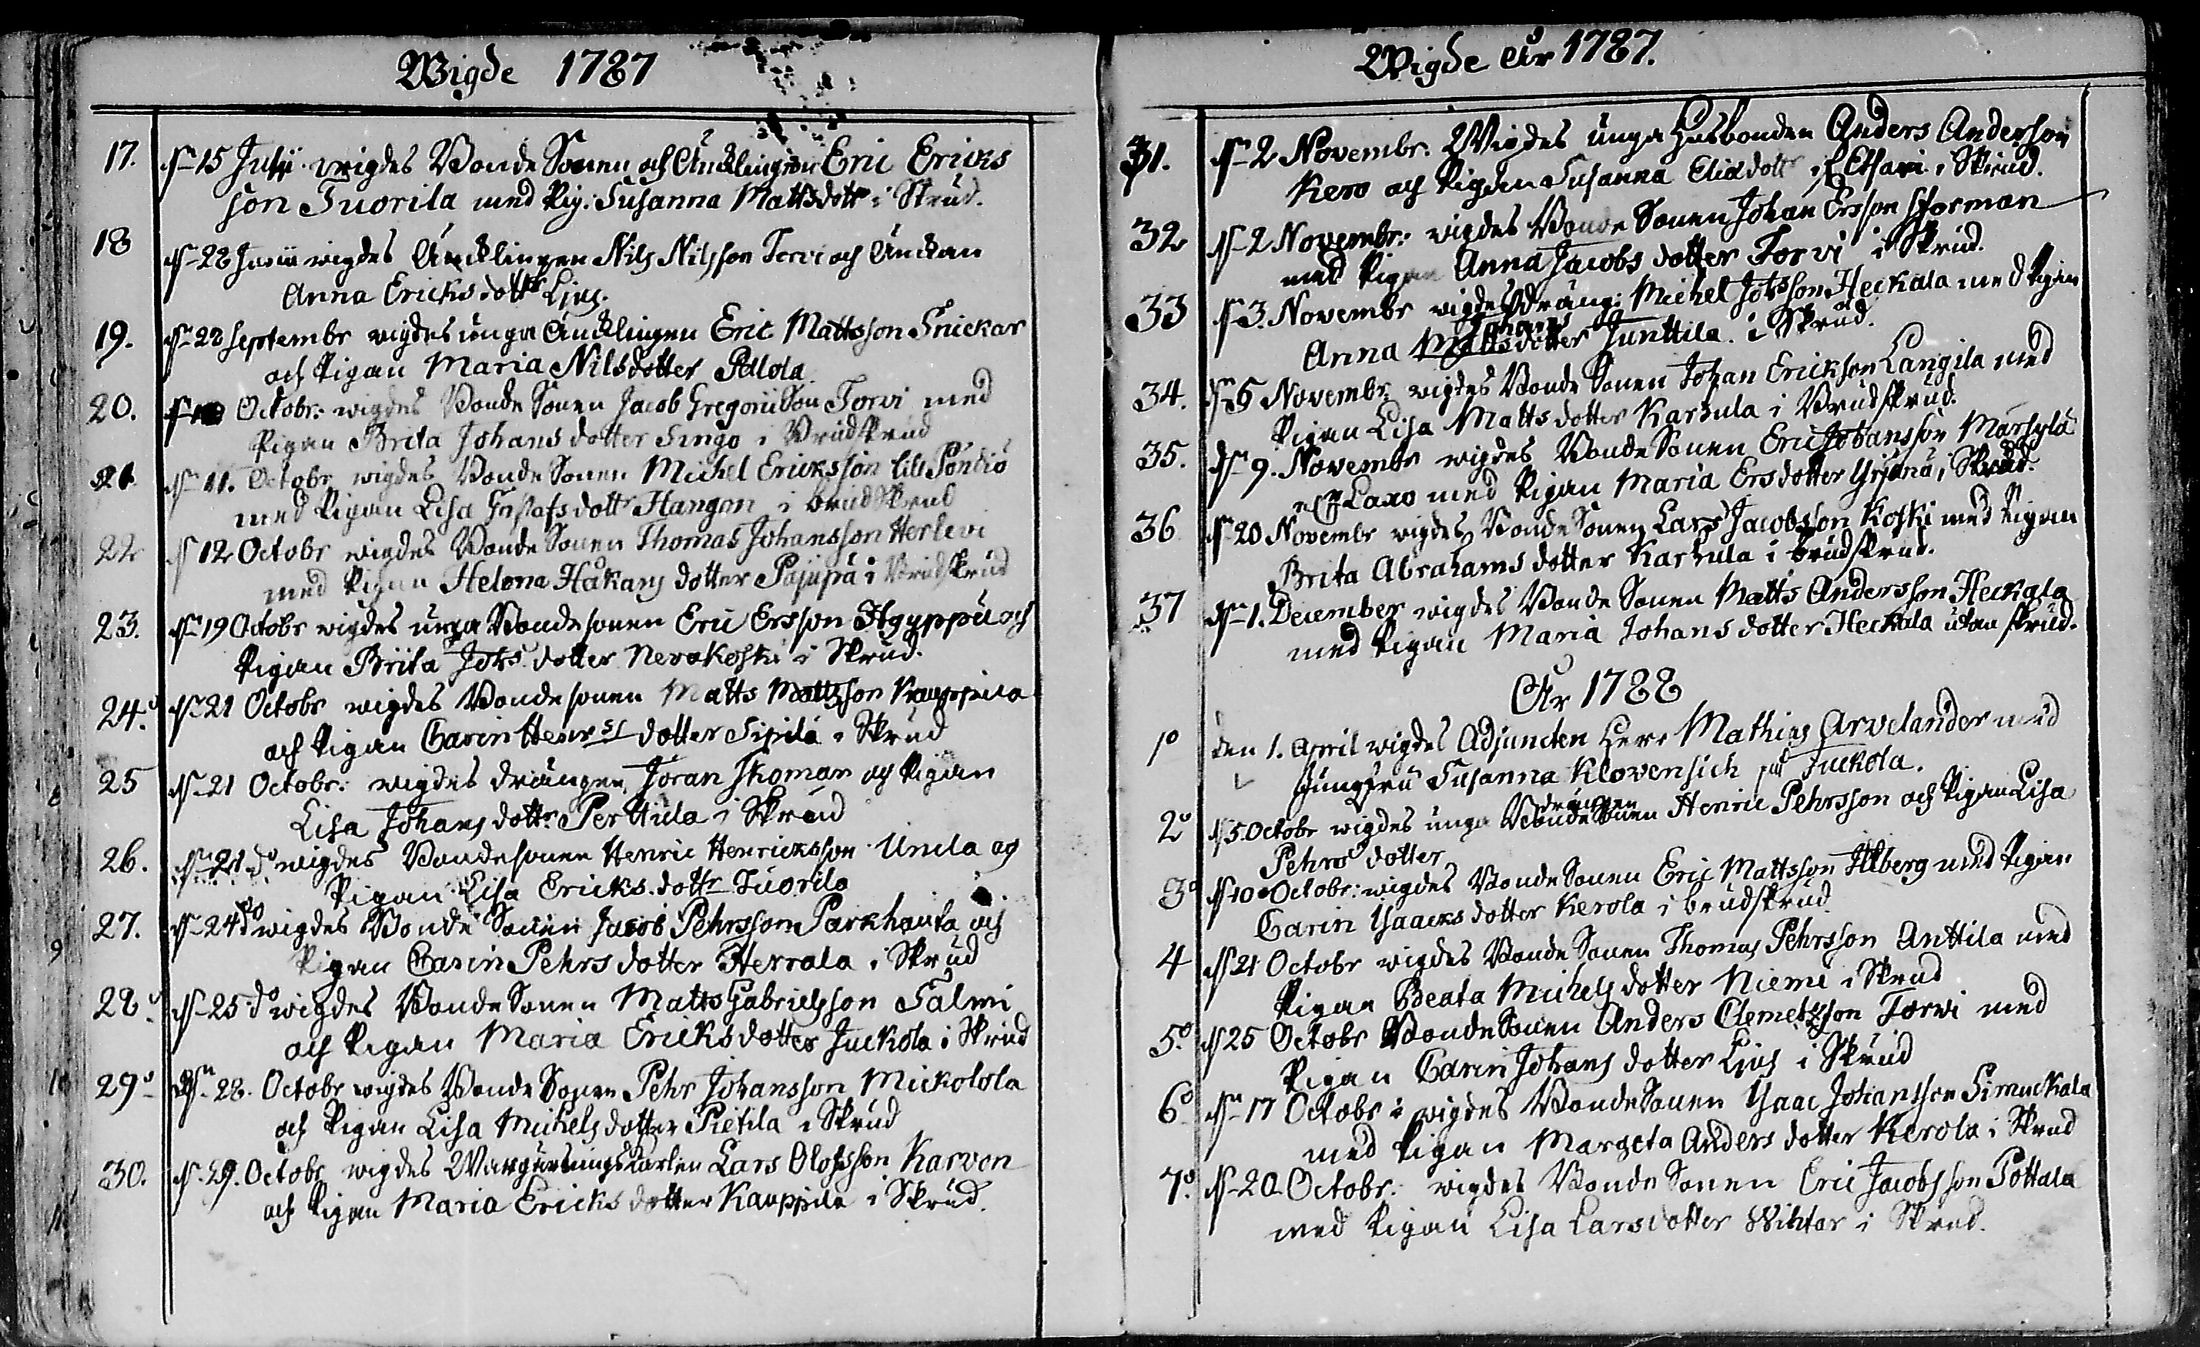 Wigde 1787
17. d 15 Julii wigdes Bonde Sonen och Encklingen Eric Ericks
son Tuorila med Pig: Susanna Mattsdottr i Skrud.
18 d 28 Junii wigdes Encklingen Nils Nilsson Torvi och Enckan
Anna Ericksdottr Ljus.
19. d 28 Septembr wigdes unga Encklingen Eric Mattsson Snickar
och Pigan Maria Nilsdotter Pellola
20. Octobr: wigdes Bonde Sonen Jacob Gregorii Son Torvi med
Pigan Brita Johans dotter Singo i Brudskrud
21 d 11. Octobr wigdes Bonde Sonen Michel Ericksson lill Pöntiö
med Pigan Lisa Gustafs dottr Hangon i brudskrud
22 d 12 Octobr wigdes Bonde Sonen Thomas Johansson Herlevi
med Pigan Helena Håkans dotter Pajupä i Brudskrud
23. dn 19 Octobr wigdes unga Bondesonen Eric Ersson Hyyppä och
Pigan Brita Johs dotter Nevakoski i Skrud.
24. d 21 Octobr wigdes Bondesonen Matts Mattsson Kauppila
och Pigan Carin Henrs dotter Sipilä i Skrud
25 d 21 Octobr: wigdes drängen Joran Skoman och Pigan
Lisa Johans dottr Perttula i Skrud
26. d 21 do wigdes Bondesonen Henric Henricksson Uncila och
Pigan Lisa Ericks dottr Tuorila
27. d 24 do wigdes Bonde Sonen Jacob Pehrsson Parkhauta och
Pigan Carin Pehrs dotter Herrala i Skrud
28 d 25 do wigdes Bonde Sonen Matts Gabrielsson Salmi
och Pigan Maria Ericks dotter Juckola i Skrud
29 dn 28. Octobr wigdes Bonde Sonen Pehr Johansson Mickolola
och Pigan Lisa Michels dotter Pietila i Skrud
30. d. 29. Octobr wigdes Lars Olofsson Karvon
och Pigan Maria Ericks dotter Kauppila i Skrud.
Wigde År 1787.
31. dn 2 Novembr: Wigdes unga Husbonden Anders Anderson
Kero och Pigan Susanna Elia dottr i Skrud.
32 d 2 Novembr: wigdes Bonde Sonen Johan Ersson Storman
med Pigan Anna Jacobs dotter Torvi i Skrud.
33 d 3. Novembr wigdes dräng: Michel Johsson Heckala med Pigan
Johans
Anna Mattsdotter Junttila i Skrud.
34. dn 5 Novembr wigdes Bonde Sonen Johan Erickson Langila med
Pigan Lisa Matts dotter Karhula i Brudskrud.
35. dn 9. Novembr wigdes Bonde Sonen Eric Johansson Marsylä
Laxo med Pigan Maria Ersdotter Yrjänä i Skrud.
36 d 20 Novembr wigdes Bonde Sonen Lars Jacobsson Koski med Pigan
Brita Abrahams dotter Karhula i brudskrud.
37 dn 1. December wigdes Bonde Sonen Matts Andersson Heckala
med Pigan Maria Johans dotter Heckala utan skrud.
År 1788
1o den 1. April wigdes Adjuncten Herr Mathias Arvelander med
Jungfru Susanna Klöversich på Juckola.
drängen
2o d 5 Octobr wigdes unga Bonde Sonen Henric Pehrsson och Pigan Lisa
Pehrs dotter
3o d 10 Octobr: wigdes Bonde Sonen Eric Mattsson Ilberg med Pigan
Carin Isaacks dotter Kerola i brudskrud.
4 d 21 Octobr wigdes Bonde Sonen Thomas Pehrsson Anttila med
Pigan Beata Michels dotter Niemi i Skrud
5o d 25 Octobr Bonde Sonen Anders Clemetsson Torvi med
Pigan Carin Johans dotter Ljus i Skrud
6o dn 17 Octobr: wigdes Bonde Sonen Isaac Johansson Simuckala
med Pigan Margeta Anders dotter Kerola i Skrud
7o. d 20 Octobr: wigdes Bonde Sonen Eric Jacobsson Pottala
med Pigan Lisa Larsdotter Wihtar i Skrud.